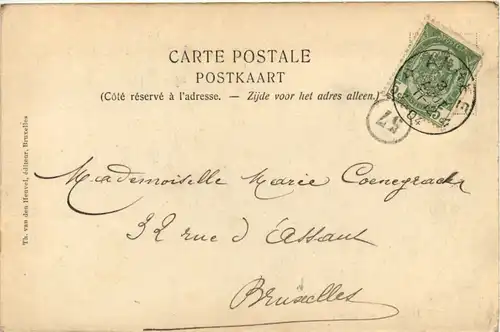 CARTE POSTALE
POSTKAART
(Côté réservé à l'adresse. — Zijde voor het adres alleen.)
37
Th. van den Heuvel, éditeur, Bruxelles
Mademoiselle Marie Coenegrachts
32 rue d'Assaut
Bruxelles